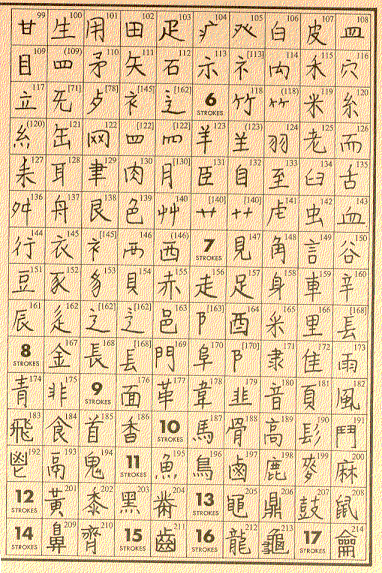 甘99 生100 用101 田102 疋103 疒104 癶105 白106 皮107 皿108
目109 罒(109) 矛110 矢111 石112 示113 礻[113] 禸114 禾115 穴116
立117 旡[71] 歺[78] 衤[145] 辶[162] 6 STROKES 竹118 ⺮(118) 米119 糸120
糹(120) 缶121 网122 罒[122] 罓[122] 羊123 𦍌[123] 羽124 老125 而126
耒127 耳128 聿129 肉130 月[130] 臣131 自132 至133 臼134 舌135
舛136 舟137 艮138 色139 艸140 艹[140] 艹[140] 虍141 虫142 血143
行144 衣145 衤[145] 襾146 西(146) 7 STROKES 見147 角148 言149 谷150
豆151 豕152 豸153 貝154 赤155 走156 足157 身158 車159 辛160
辰161 辵162 辶[162] 辶[162] 邑163 阝[163] 酉164 釆165 里166 镸[168]
8 STROKES 金167 長168 镸[168] 門169 阜170 阝[170] 隶171 隹172 雨173
青174 非175 9 STROKES 面176 革177 韋178 韭179 音180 頁181 風182
飛183 食184 首185 香186 10 STROKES 馬187 骨188 高189 髟190 鬥191
鬯192 鬲193 鬼194 11 STROKES 魚195 鳥196 鹵197 鹿198 麥199 麻200
12 STROKES 黃201 黍202 黑203 黹204 13 STROKES 黽205 鼎206 鼓207 鼠208
14 STROKES 鼻209 齊210 15 STROKES 齒211 16 STROKES 龍212 龜213 17 STROKES 龠214